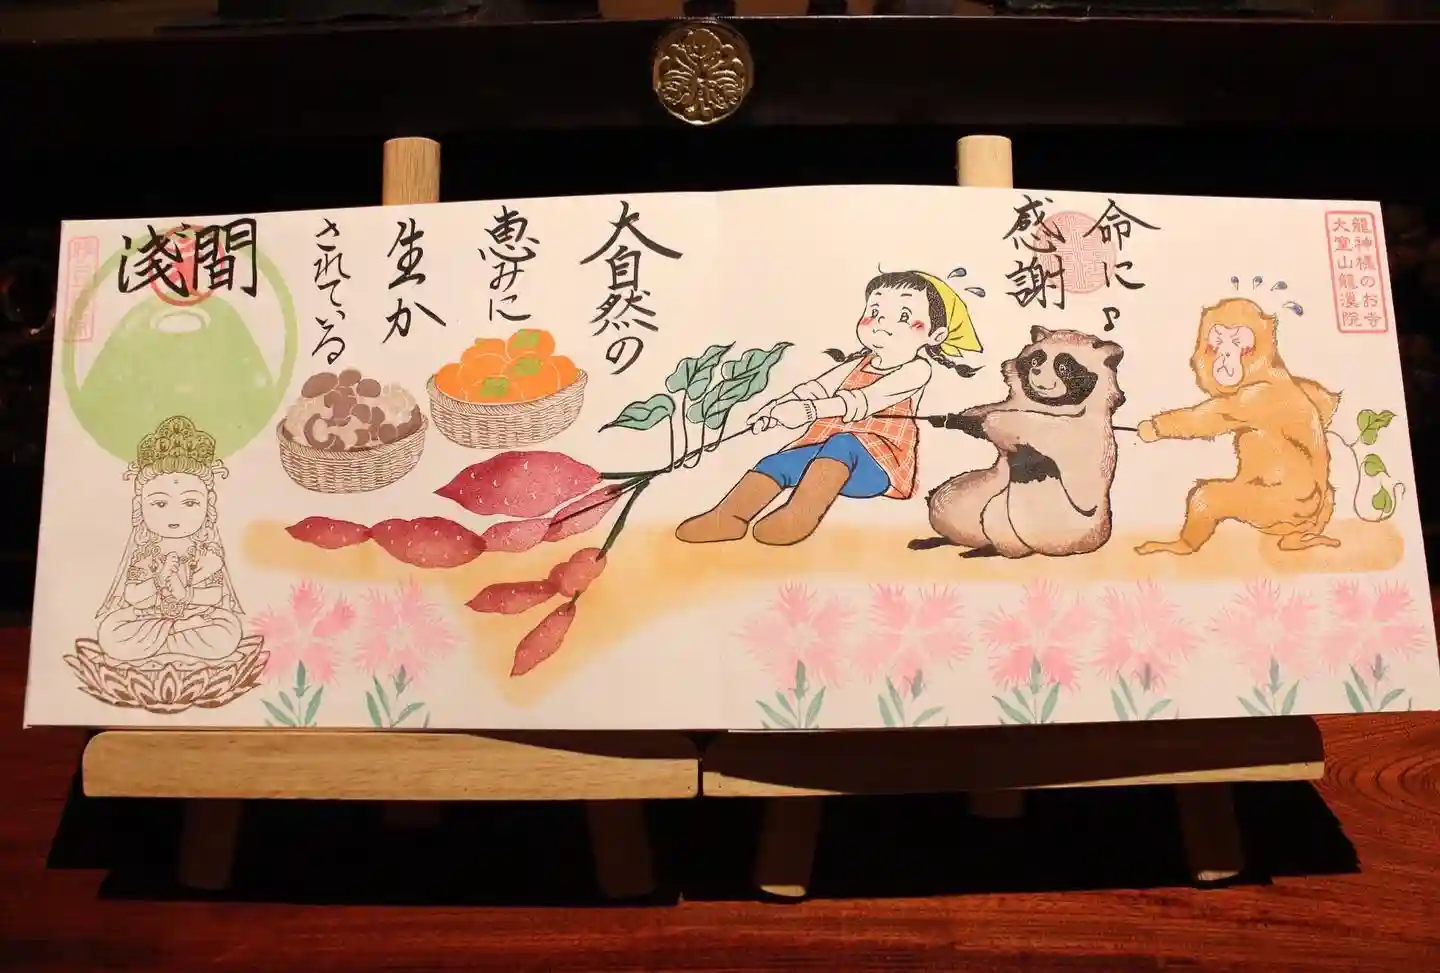 龍神様のお寺
大室山龍渓院
命に
感謝
大自然の
恵みに
生か
されている
淺間